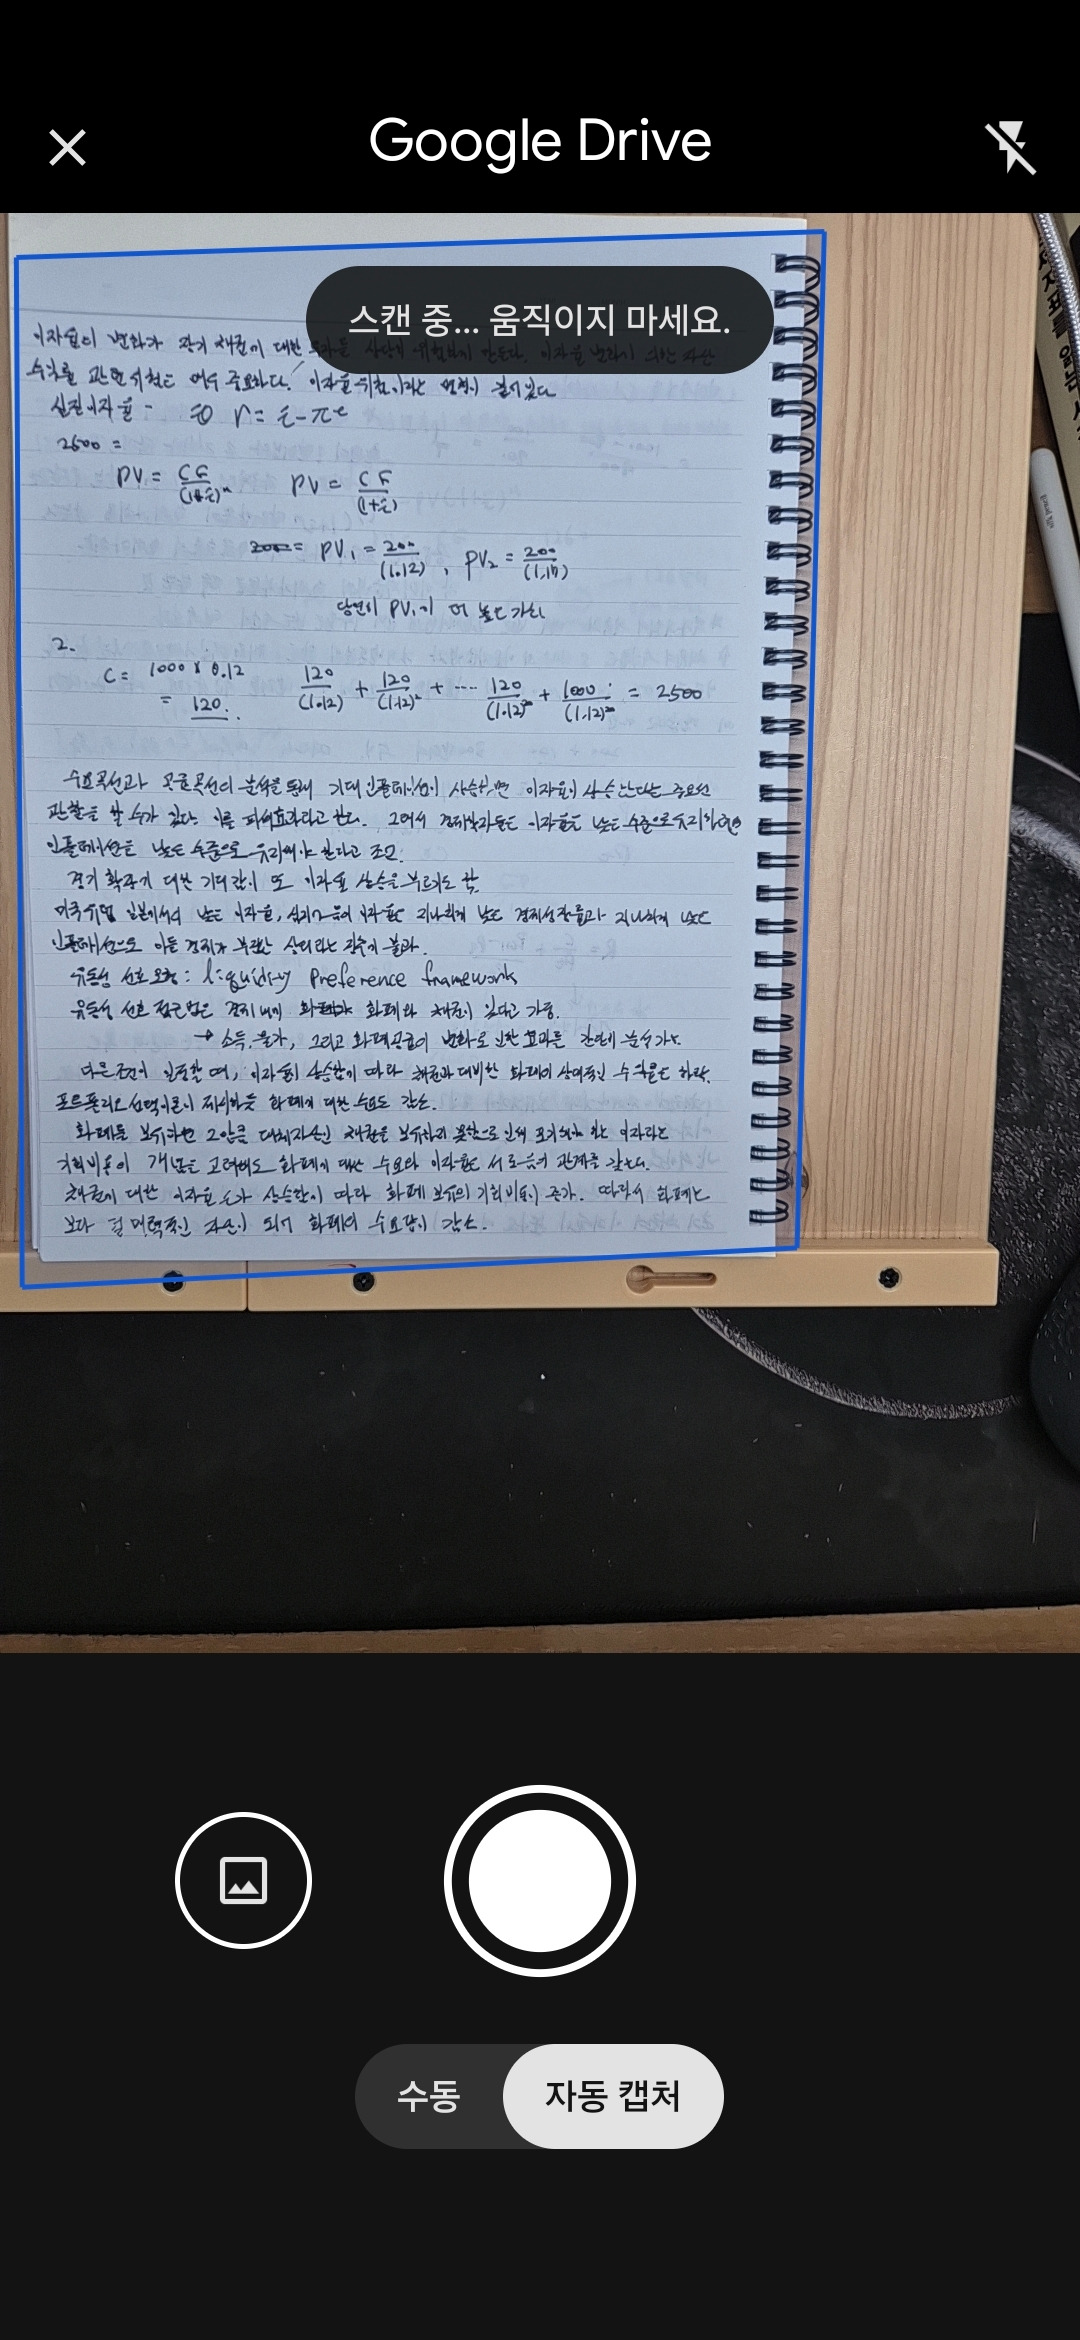 Google Drive
스캔 중... 움직이지 마세요.
이자율의 변화가 장기 채권에 대한 투자를 상당히 위험하게 만든다. 이자율 변화에 의한 자산
수익률 관련 위험은 매우 중요하다. 이자율 위험이라는 명칭이 붙어있다
실질이자율 - ⇒ r = i - πe
2500 =
PV = CF/(1+i)ⁿ PV = CF/(1+i)
= PV₁ = 200/(1.12) , PV₂ = 200/(1.15)
당연히 PV₁이 더 높은 가치
2.
C = 1000 x 0.12 120/(1.12) + 120/(1.12)² + ···· 120/(1.12)²⁰ + 1000/(1.12)²⁰ = 2500
= 120.
수요곡선과 공급곡선의 분석을 통해 기대 인플레이션이 상승하면 이자율이 상승한다는 중요한
관찰을 할 수가 있다 이를 피셔효과라고 한다. 그래서 경제학자들은 이자율을 낮은 수준으로 유지하려면
인플레이션을 낮은 수준으로 유지해야 한다고 조언.
경기 확장기 대한 기대감이 또 이자율 상승을 부르기도 함
미국 유럽 일본에서의 낮은 이자율, 심지어 음의 이자율은 지나치게 낮은 경제성장률과 지나치게 낮은
인플레이션으로 이들 경제가 부진한 상태라는 징후에 불과.
유동성 선호 모형 : liquidity Preference framework
유동성 선호 접근법은 경제 내에 화폐와 채권이 있다고 가정.
→ 소득, 물가, 그리고 화폐공급의 변화로 인한 효과를 간단히 분석가능
다른 조건이 일정할 때, 이자율이 상승함에 따라 채권과 대비한 화폐의 상대적인 수익률은 하락.
포트폴리오 선택이론이 제시하듯 화폐에 대한 수요도 감소.
화폐를 보유하면 그만큼 대체자산인 채권을 보유하지 못함으로 인해 포기해야 하는 이자라는
기회비용의 개념을 고려해도 화폐에 대한 수요와 이자율은 서로 음의 관계를 갖는다.
채권에 대한 이자율 i가 상승함에 따라 화폐 보유의 기회비용이 증가. 따라서 화폐는
보다 덜 매력적인 자산이 되어 화폐의 수요량이 감소.
수동
자동 캡처